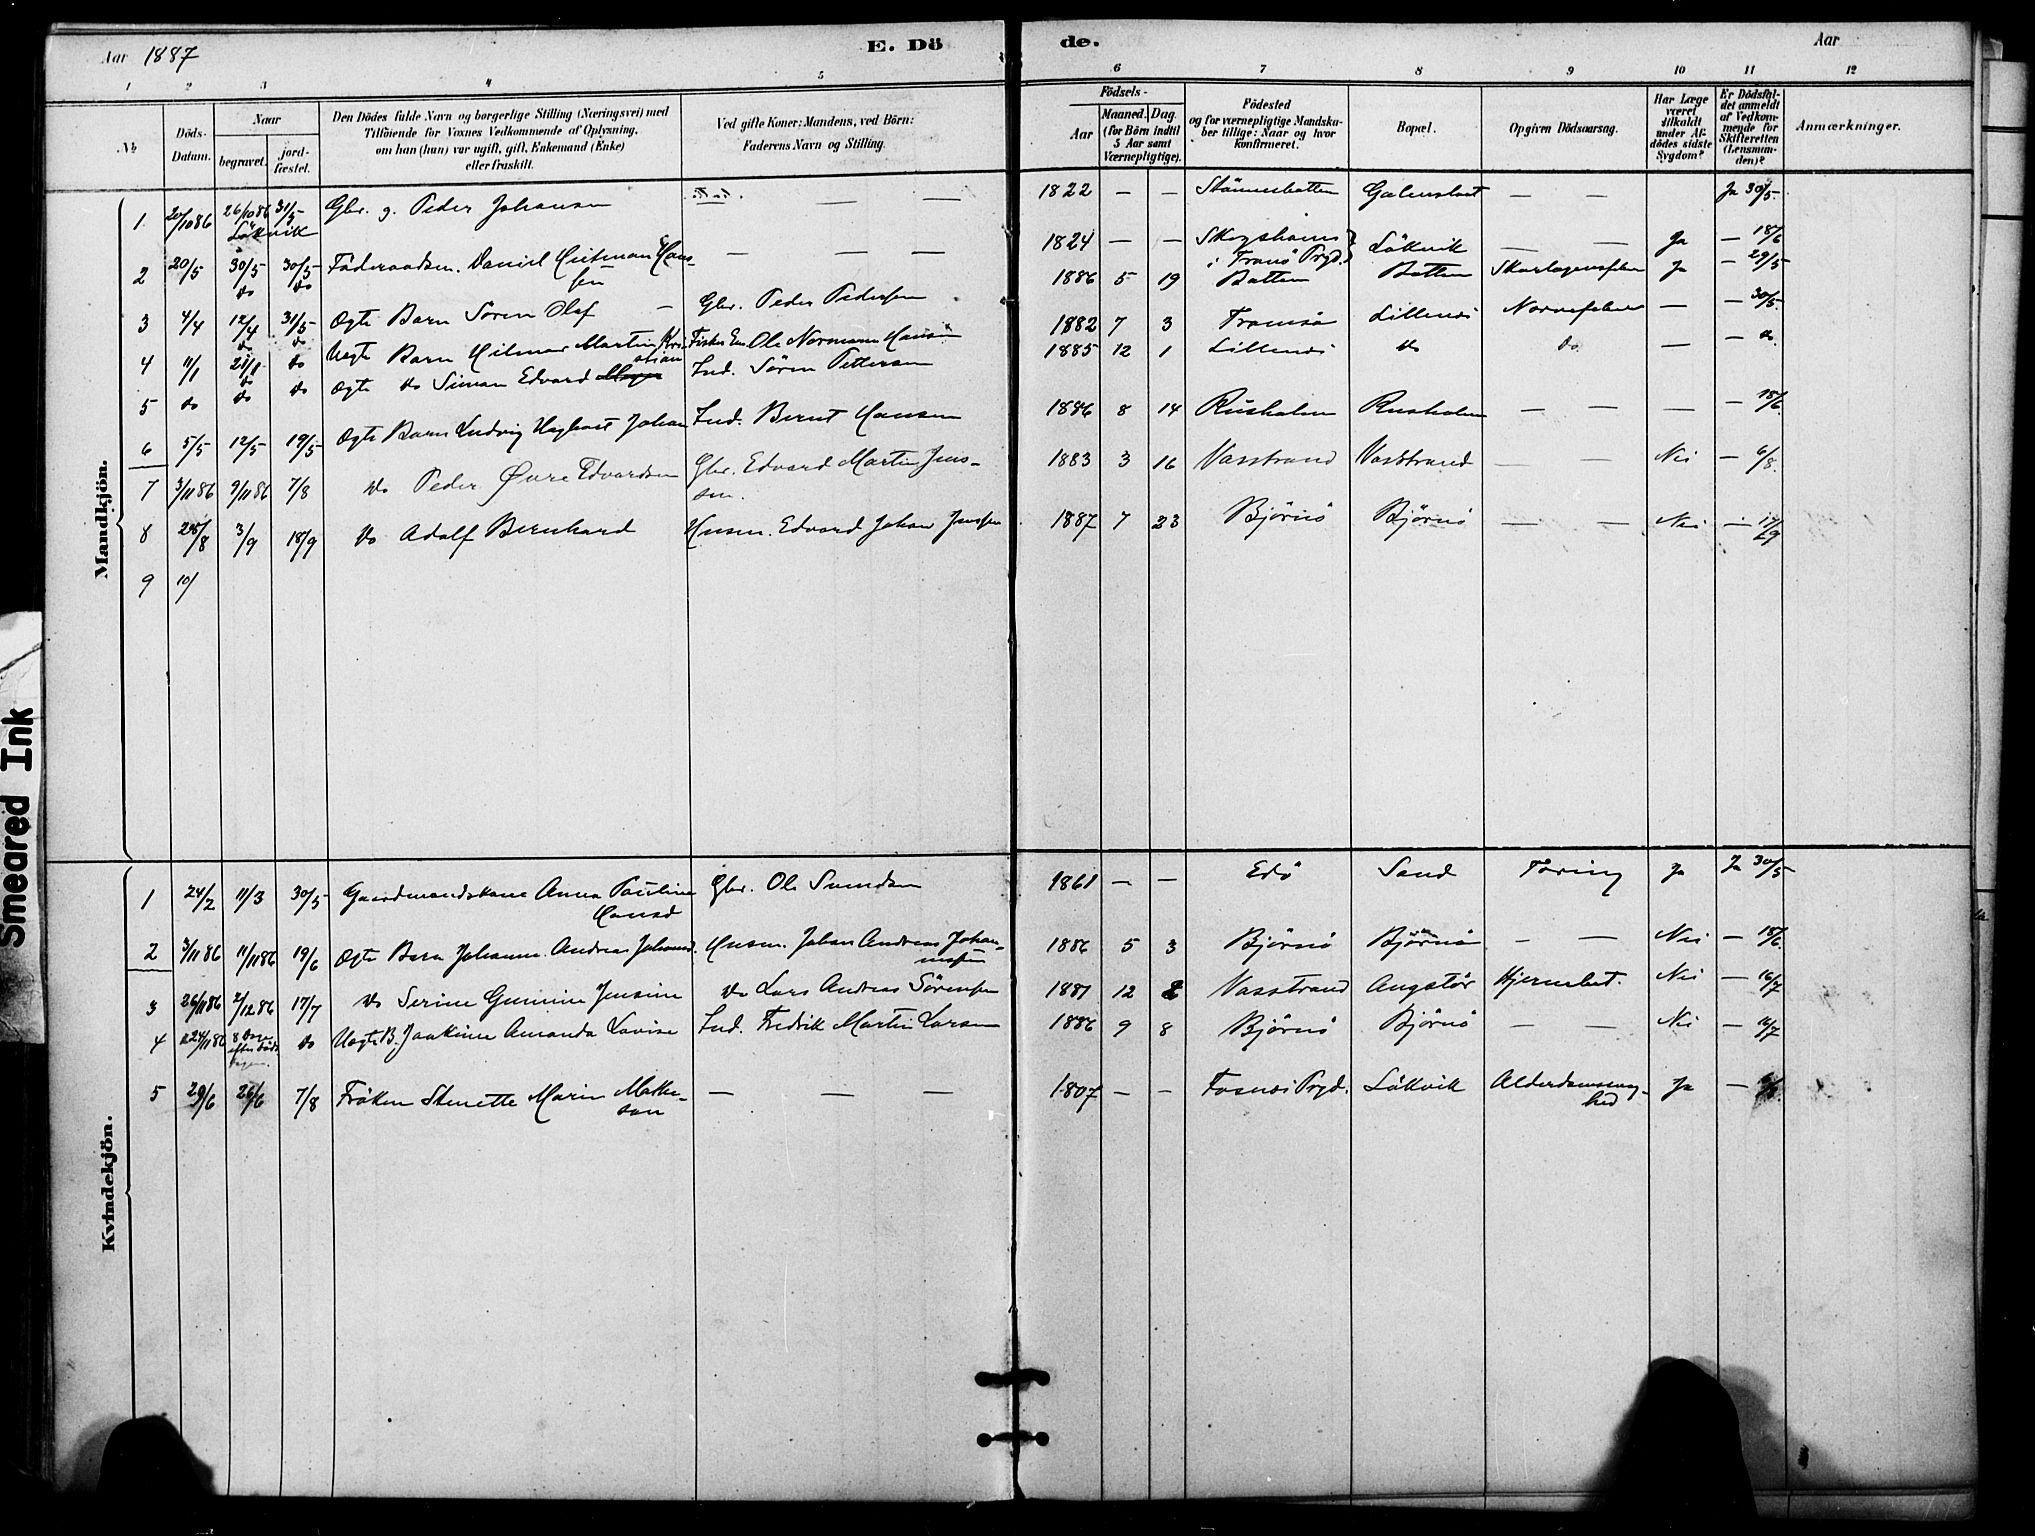 Aar 1887
E. Dö
de.
Aar
1 2 3 4 5 6 7 8 9 10 11 12
№
Döds-Datum.
Naar
begravet.
jord-fæstet.
Den Dödes fulde Navn og borgerlige Stilling (Næringsvei) med
Tilföiende for Voxnes Vedkommende af Oplysning,
om han (hun) var ugift, gift, Enkemand (Enke)
eller fraskilt.
Ved gifte Koner: Mandens, ved Börn:
Faderens Navn og Stilling.
Födsels-
Aar
Maaned. Dag.
(for Börn indtil
5 Aar samt
Værnepligtige).
Födested
og for værnepligtige Mandska-
ber tillige: Naar og hvor
konfirmeret.
Bopæl.
Opgiven Dödsaarsag.
Har Læge
været
tilkaldt
under Af-
dödes sidste
Sygdom?
Er Dödsfal-
det anmeldt
af Vedkom-
mende for
Skifteretten
(Lensman-
den)?
Anmærkninger.
Mandkjön.
1 20/10 86 26/10 86 31/5 Gbr. g. Peder Johansen — — 1822 — — Galenslaet — — Ja 30/5.
Låkvik
2 20/5 30/5 30/5 Föderaadsm. Daniel Hans- — — — 1824 — — Låkvik — — Ja — 18/6
do do sen i Tranö Prgd.
3 4/4 12/4 31/5 Ægte Barn Sören Olaf — Gbr. Peder Pedersen 1886 5 19 Botten Botten Skarlagensfeber Ja — 29/5
do do
4 11/1 21/1 do Uægte Barn Hilmar Martin Kri- Ole Normann Hansen 1882 7 3 Tromsö Lillenes Nervefeber — — 30/5.
do stian
5 do do do Ægte do Simon Edvard Ind. Sören Pettersen 1885 12 1 Lillenes do do — — do.
6 5/5 12/5 19/5 Ægte Barn Ludvig Johan Ind. Bernt Hansen 1886 8 14 Rusholm Rusholm — — — — 18/6.
7 3/11 86 9/11 86 7/8 do Peder Øvre Edvardsen Gbr. Edvard Martin Jens- 1883 3 16 Vasstrand Vasstrand — — Nei — 6/8.
sen.
8 25/8 3/9 18/9 do Adolf Bernhard Husm. Edvard Johan Jenssen 1887 7 23 Björnö Björnö — — Nei — 17/9
9 10/
Kvindekjön.
1 24/2 11/3 30/5 Gaardmandskone Anna Pauline Gbr. Ole Svendsen 1861 — — Edö Sand Tæring Ja Ja 30/5
Hansd
2 3/11 86 11/11 86 19/6 Ægte Barn Johanna Andrea Johansd. Husm. Johan Andreas Johan- 1886 5 3 Björnö Björnö — — Nei — 18/6.
nessen
3 26/11 86 2/12 86 17/7 do Serine Gunnine Jensine do Lars Andreas Sörensen 1881 12 2 Vasstrand Angstör Hjernebet. Nei — 16/7
4 24/11 86 8 Dage do Uægte B. Joakime Amanda Lovise Ind. Fredrik Martin Larsen 1886 9 8 Björnö Björnö — — Nei — 16/7
efter Döds-
dagen.
5 29/6 26/6 7/8 Fröken Stenette Marie Mathe- — — — 1807 — — Fosnæs Prgd. Låkvik Alderdomssvag- Ja —
son hed
Smeared Ink